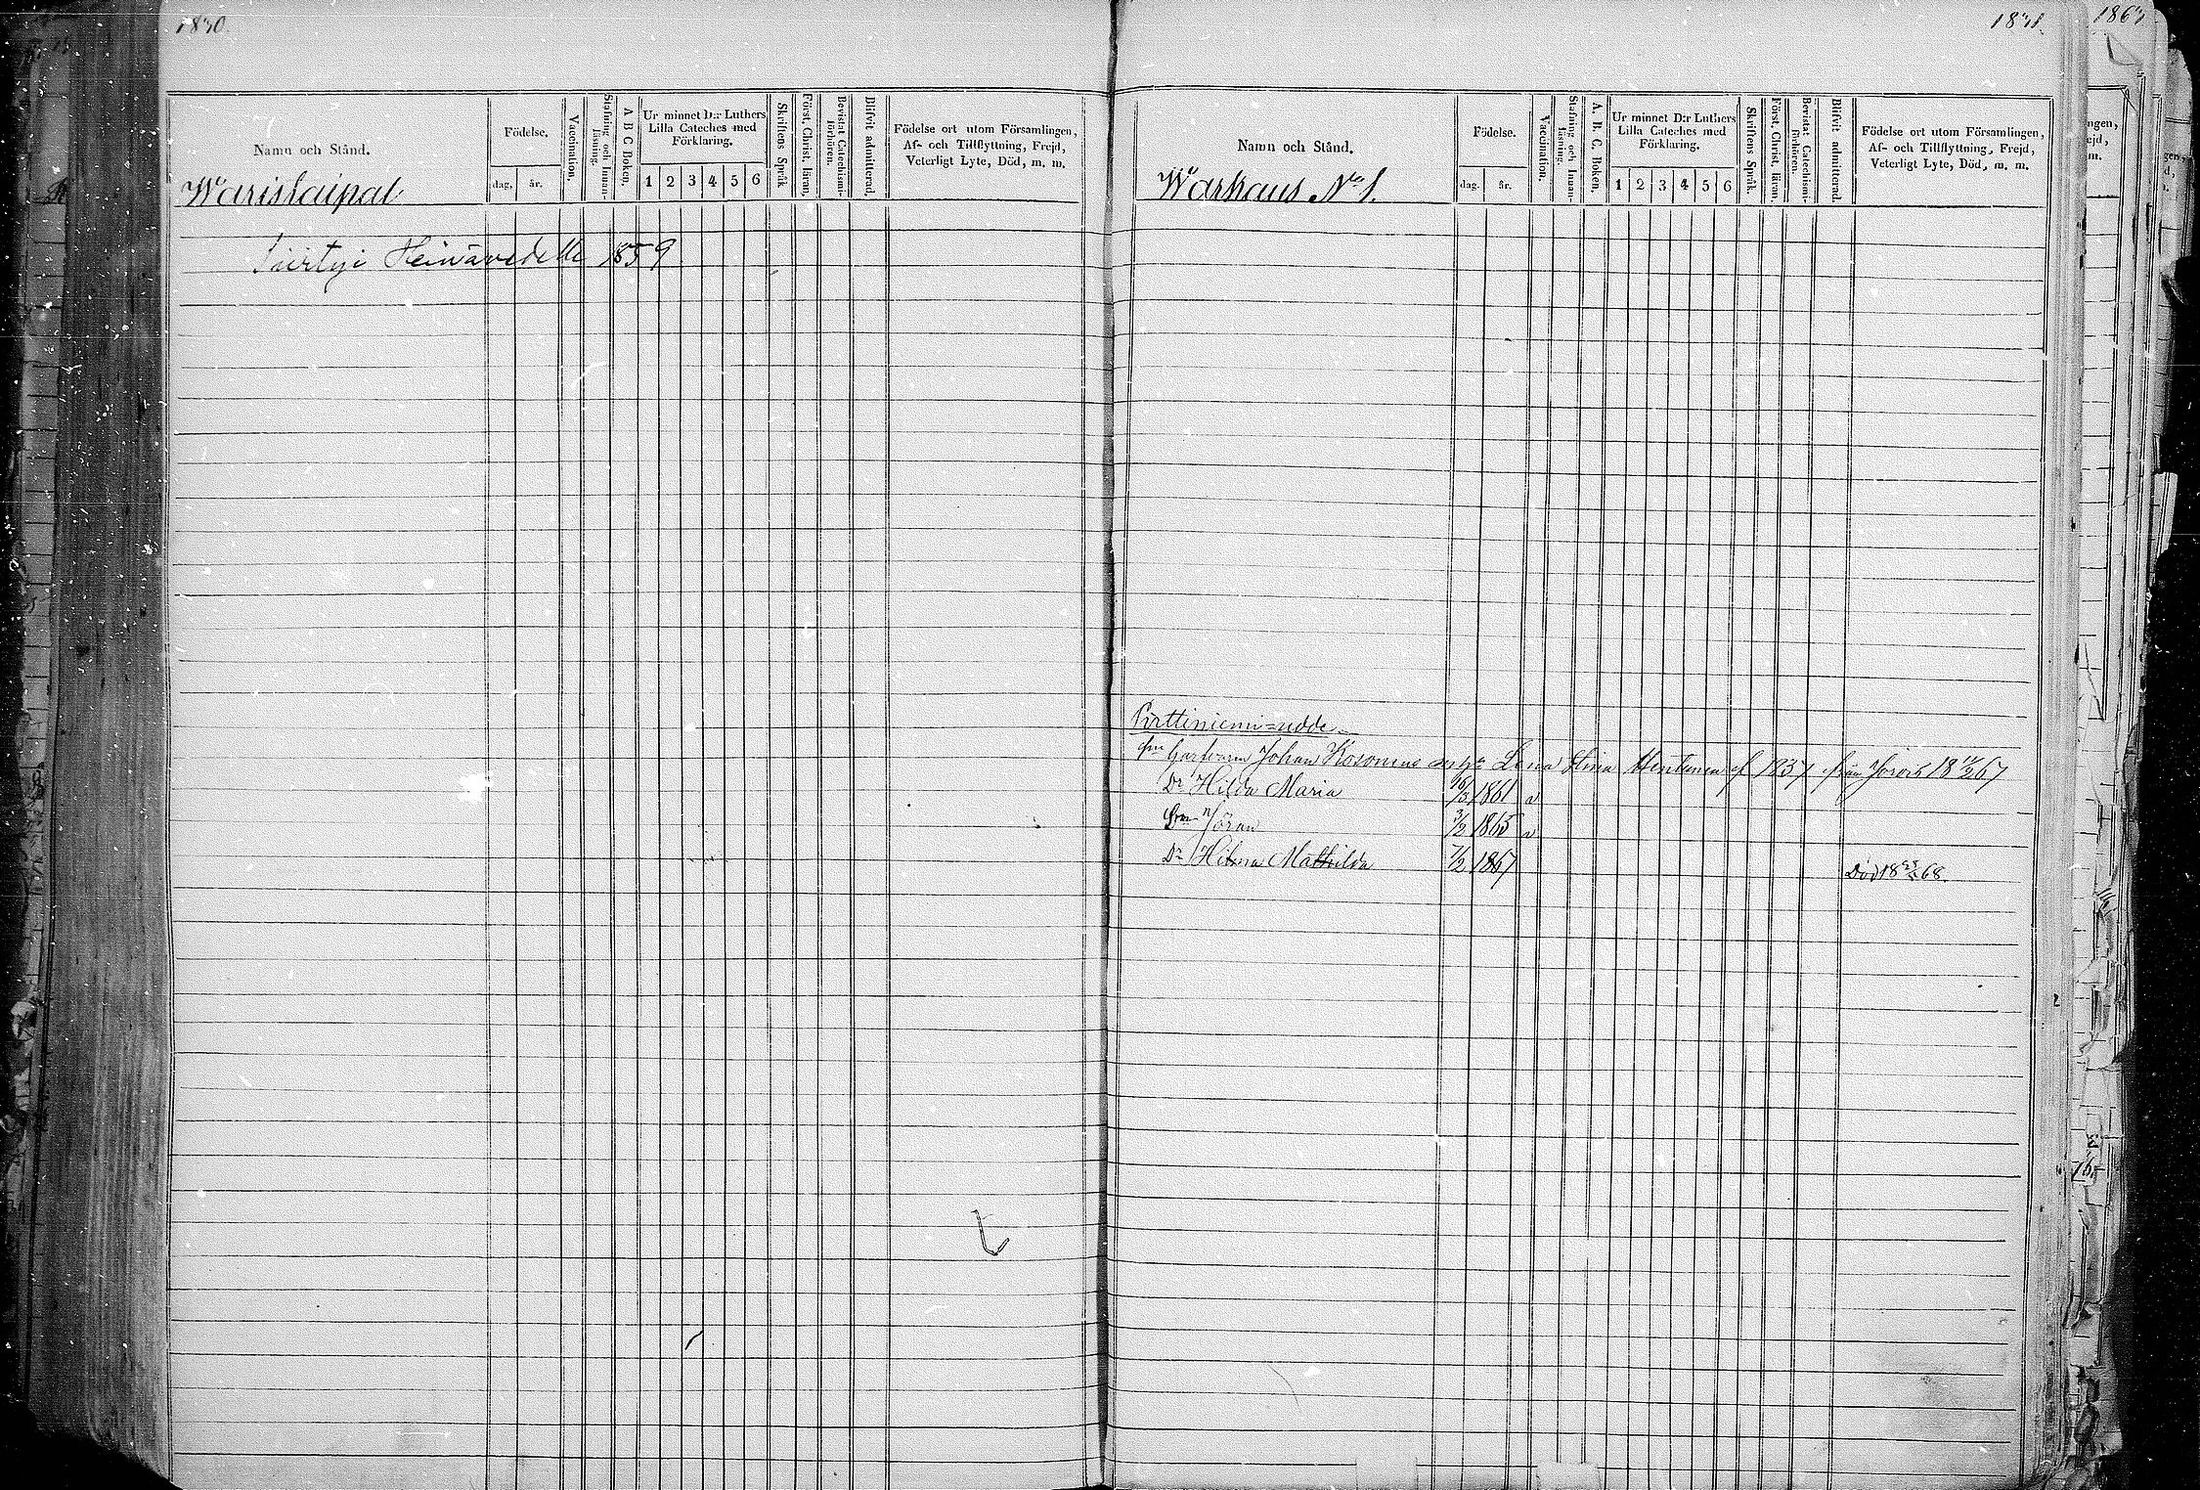 1830.
Namn och Stånd.
Födelse.
dag. år.
Vaccination.
Stafning och Innan-läsning.
A B C Boken.
Ur minnet D:r Luthers
Lilla Cateches med
Förklaring.
1 2 3 4 5 6
Skriftens Språk
Först. Christ. läran.
Bevistat Catechismi-förhören.
Blifvit admitterad.
Födelse ort utom Församlingen,
Af- och Tillflyttning, Frejd,
Veterligt Lyte, Död, m. m.
Warislaipal
Siirtyi Heinävedelle 1859
1831.
Namn och Stånd.
Födelse.
dag. år.
Vaccination.
Stafning och Innan-läsning.
A. B. C. Boken.
Ur minnet D:r Luthers
Lilla Cateches med
Förklaring.
1 2 3 4 5 6
Skriftens Språk.
Först. Christ. läran.
Bevistat Catechismi-förhören.
Blifvit admitterad.
Födelse ort utom Församlingen,
Af- och Tillflyttning, Frejd,
Veterligt Lyte, Död, m. m.
Warkaus No 1.
Pirttiniemi=udde
Johan Kosonens Lena Stina af 1837 från Jorois 67
Dr Hilda Maria 16/3 1861 v
Son Jöran 3/2 1865 v
Dr Hilma Mathilda 7/2 1867 Död 18 68.
1863